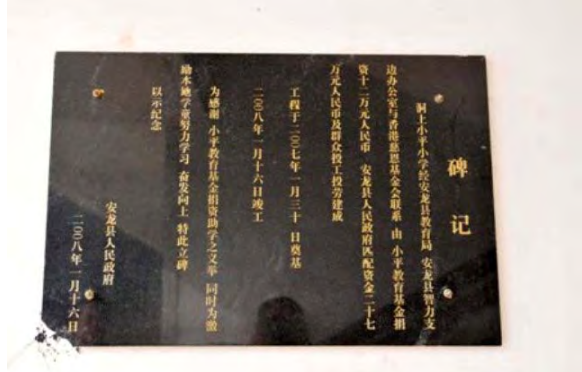 碑记
洞上小平小学经安龙县教育局 安龙县智力支
边办公室与香港慈恩基金会联系 由 小平教育基金捐
资十二万元人民币 安龙县人民政府匹配资金二十七
万元人民币及群众投工投劳建成
工程于二〇〇七年一月三十日奠基
二〇〇八年一月十六日竣工
为感谢 小平教育基金捐资助学之义举 同时为激
励本地学童努力学习 奋发向上 特此立碑
以示纪念
安龙县人民政府
二〇〇八年一月十六日